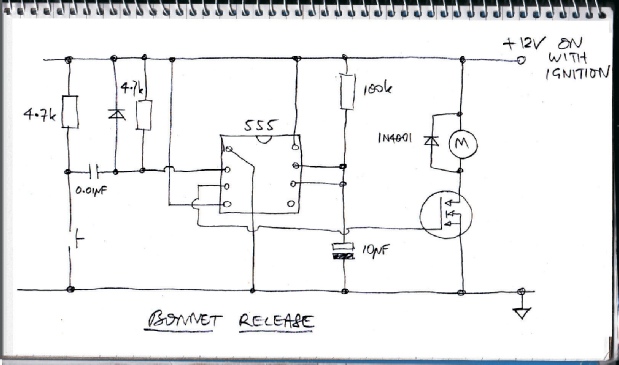 +12V ON
WITH
IGNITION
4.7k
4.7k
555
100k
1N4001
M
0.01µF
10µF
BONNET RELEASE